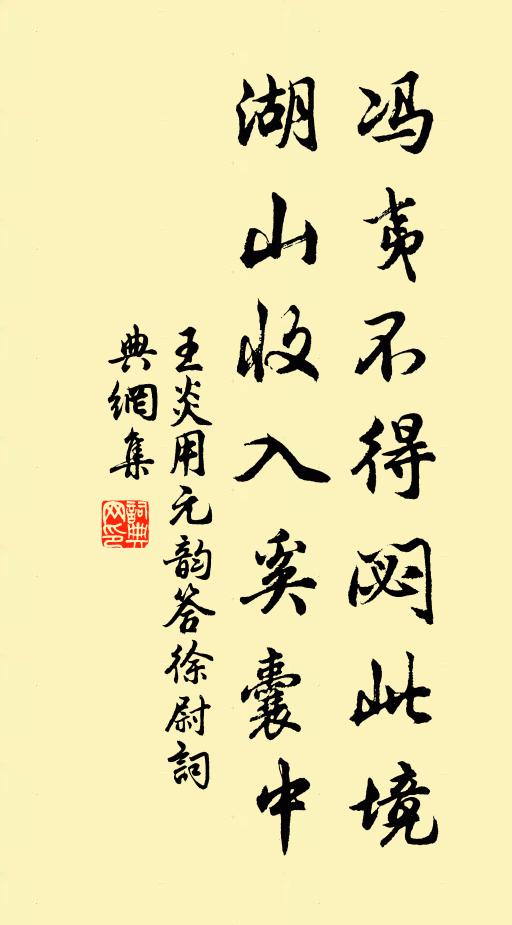 冯夷不得閟此境
湖山收入奚囊中
王炎用元韵答徐尉詞
典網集
詞典
网印